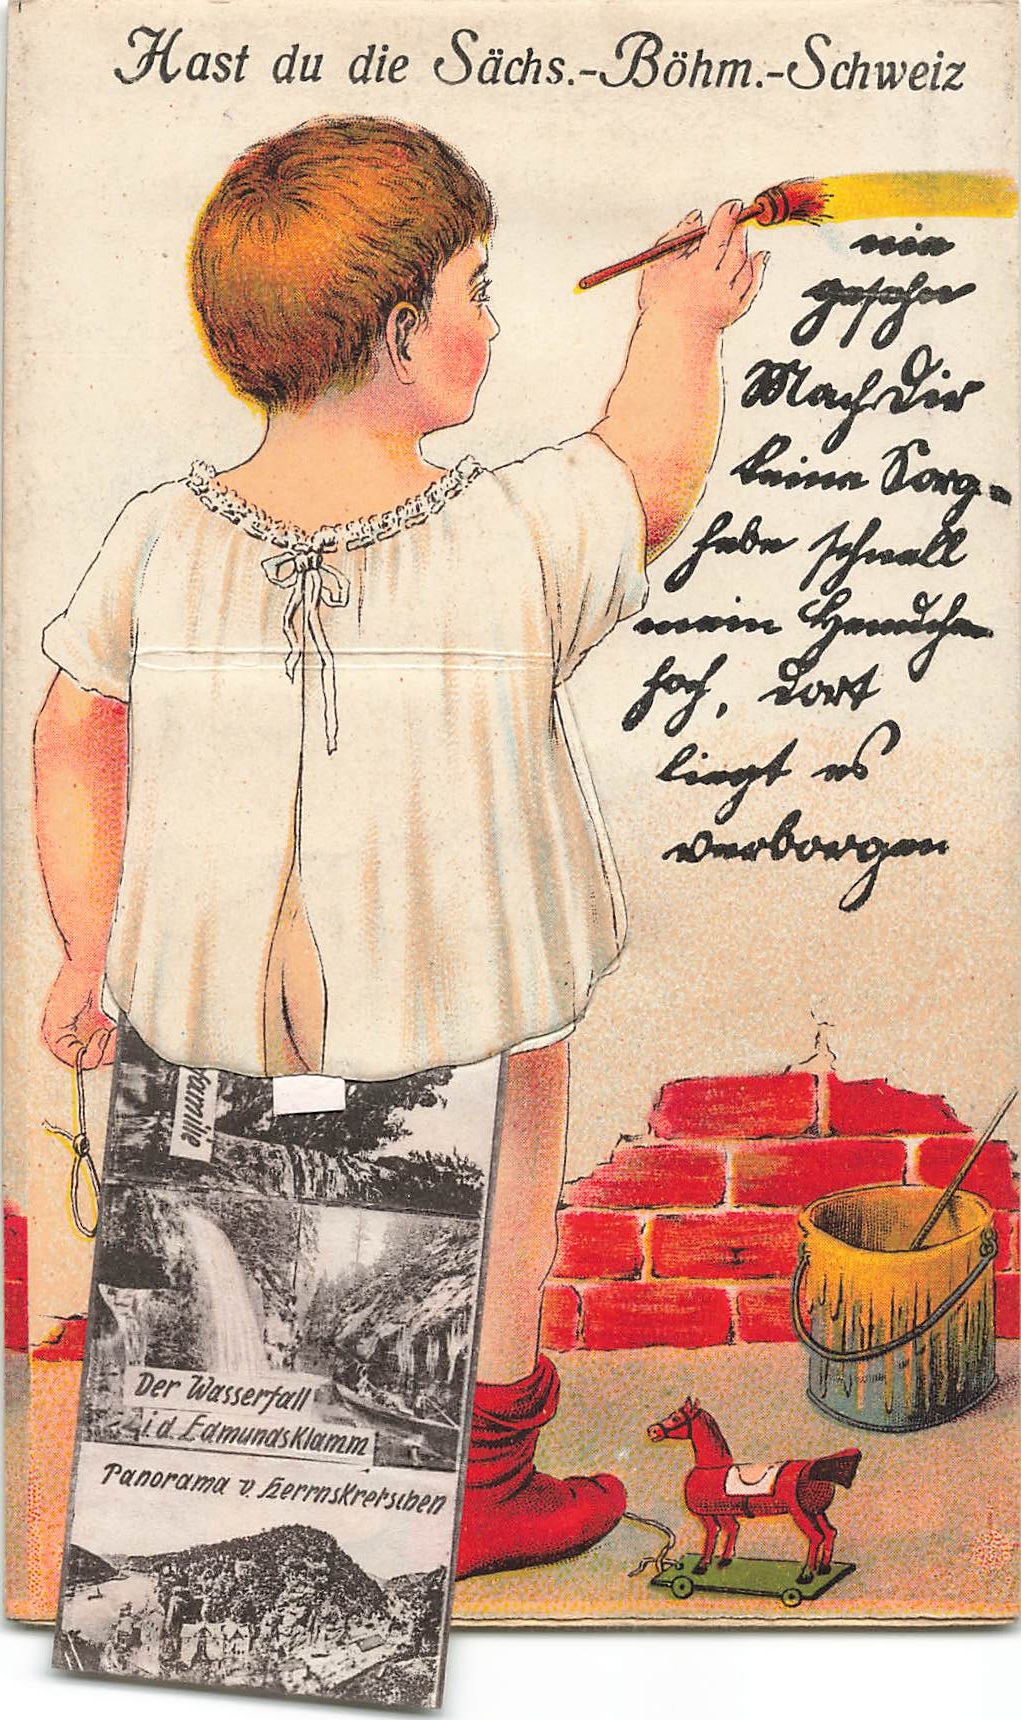 Hast du die Sächs.-Böhm.-Schweiz
nie
gesehn
Mach Dir
keine Sorg-
hebe schnell
mein Hemdchen
hoch, dort
liegt es
verborgen
Der Wasserfall
i. d. Edmundsklamm
Panorama v. Herrnskretschen